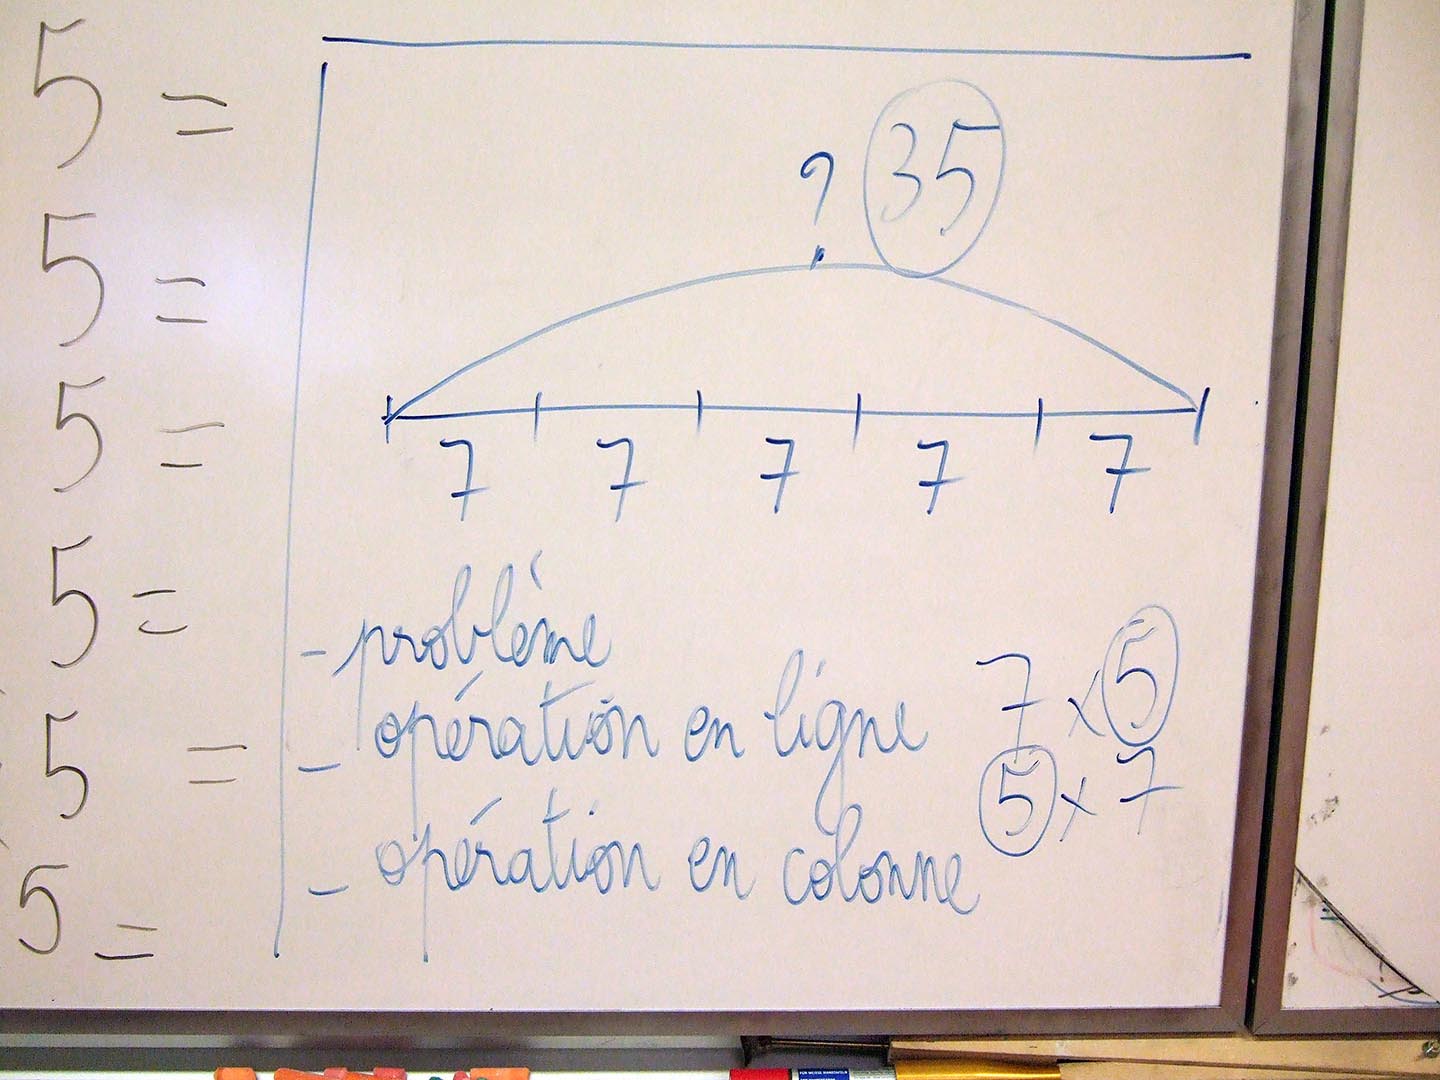 5 =
5 =
5 =
5 =
5 =
5 =
? 35
7 7 7 7 7
- problème
- opération en ligne 7 x 5
5 x 7
- opération en colonne